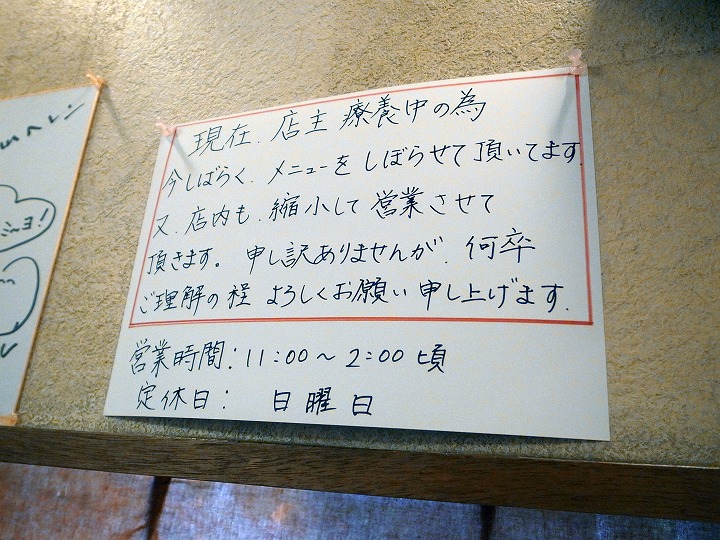 現在、店主 療養中の為
今しばらく、メニューを しぼらせて頂いてます.
又、店内も、縮小して営業させて
頂きます。申し訳ありませんが、何卒
ご理解の程 よろしくお願い申し上げます.
営業時間:11:00～2:00頃
定休日: 日曜日